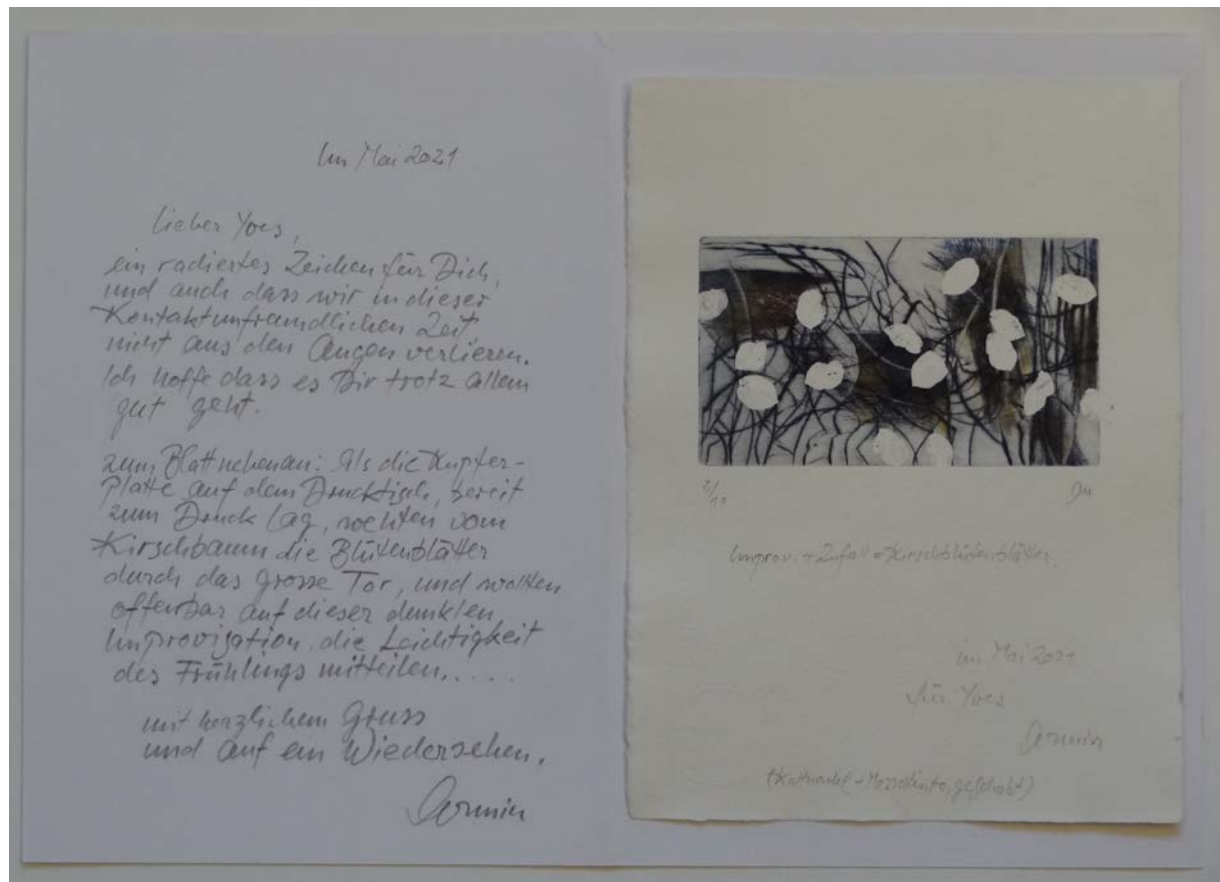 Im Mai 2021
Lieber Yves,
ein radiertes Zeichen für Dich,
und auch dass wir in dieser
Kontaktunfreundlichen Zeit
nicht aus den Augen verlieren.
Ich hoffe dass es Dir trotz allem
gut geht.
zum Blatt nebenan: Als die Kupfer-
platte auf dem Drucktisch, bereit
zum Druck lag, wehten vom
Kirschbaum die Blütenblätter
durch das grosse Tor, und wollten
offenbar auf dieser dunklen
Improvisation, die Leichtigkeit
des Frühlings mitteilen.....
mit herzlichem Gruss
und auf ein Wiedersehen.
Armin
2/10
Improv. + Zufall = Kirschblütenblätter.
im Mai 2021
für Yves
Armin
(Kaltnadel + Mezzotinto, geschabt)